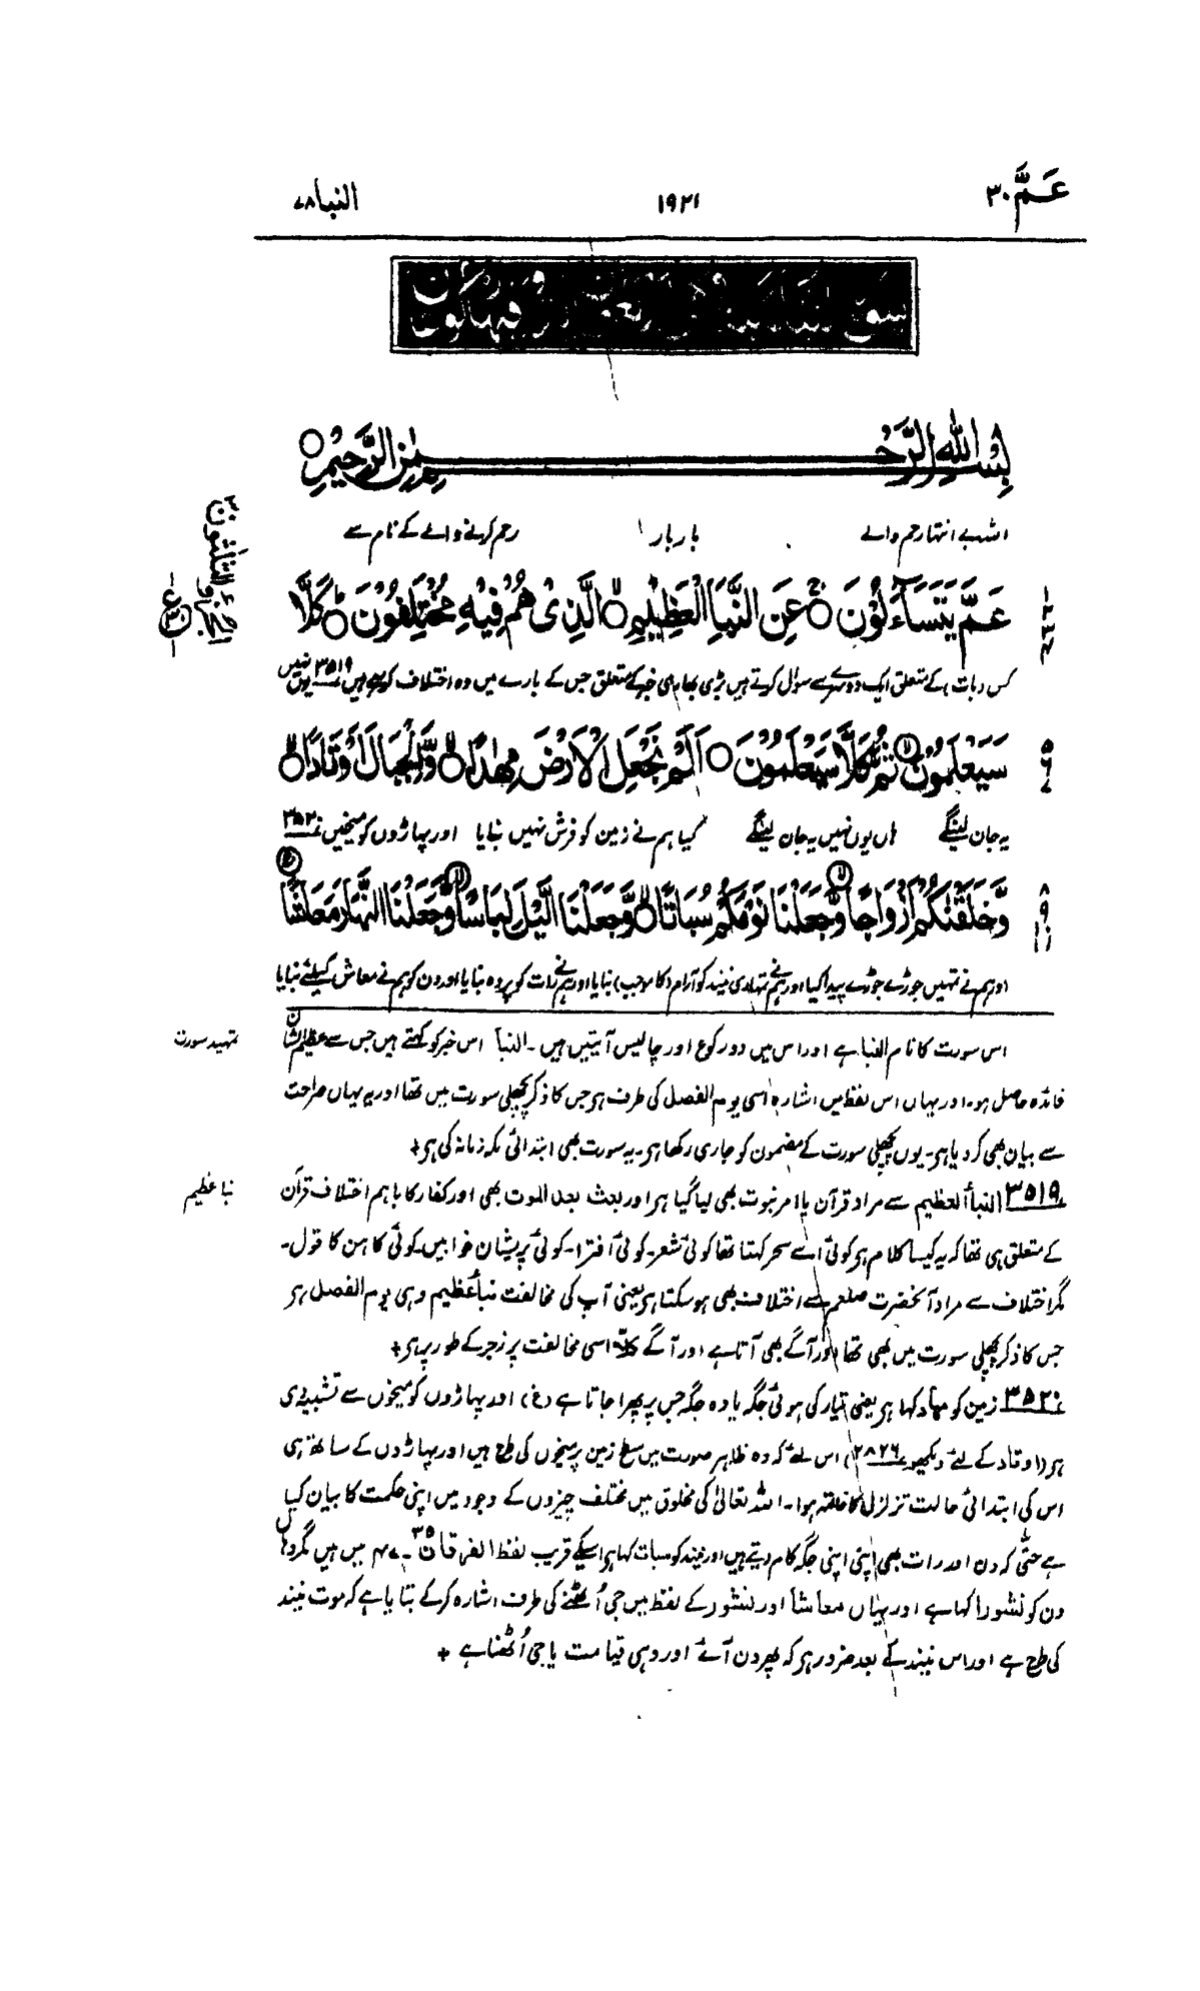 عَمَّ ۳۰
۱۹۲۱
النبا ۷۸
بِسْمِ اللّٰهِ الرَّحْمٰنِ الرَّحِيْمِ ○
اللہ بے انتہا رحم والے بار بار رحم کرنے والے کے نام سے
الجزء الثلثون ۳
عَمَّ يَتَسَآءَلُوْنَ ○ عَنِ النَّبَاِ الْعَظِيْمِ ○ الَّذِىْ هُمْ فِيْهِ مُخْتَلِفُوْنَ ○ كَلَّا
کس (بات) کے متعلق ایک دوسرے سے سوال کرتے ہیں بڑی بھاری خبر کے متعلق جس کے بارے میں وہ اختلاف کر رہے ہیں ۳۵۱۹ یوں نہیں
سَيَعْلَمُوْنَ ○ ثُمَّ كَلَّا سَيَعْلَمُوْنَ ○ اَلَمْ نَجْعَلِ الْاَرْضَ مِهٰدًا ○ وَّالْجِبَالَ اَوْتَادًا ○
یہ جان لینگے ہاں یوں نہیں یہ جان لینگے کیا ہم نے زمین کو فرش نہیں بنایا اور پہاڑوں کو میخیں ۳۵۲۰
وَّخَلَقْنٰكُمْ اَزْوَاجًا ○ وَّجَعَلْنَا نَوْمَكُمْ سُبَاتًا ○ وَّجَعَلْنَا الَّيْلَ لِبَاسًا ○ وَّجَعَلْنَا النَّهَارَ مَعَاشًا ○
اور ہم نے تمہیں جوڑے جوڑے پیدا کیا اور ہم نے تمہاری نیند کو آرام (کا موجب) بنایا اور ہم نے رات کو پردہ بنایا اور دن کو ہم نے معاش کیلئے بنایا
تمہید سورت
اس سورت کا نام النبا ہے اور اس میں دو رکوع اور چالیس آیتیں ہیں۔ النبأ اس خبر کو کہتے ہیں جس سے عظیم الشان
فائدہ حاصل ہو۔ اور یہاں اس لفظ میں اشارہ اسی یوم الفصل کی طرف ہر جس کا ذکر پچھلی سورت میں تھا اور یہ یہاں صراحت
سے بیان بھی کر دیا ہر۔ یوں پچھلی سورت کے مضمون کو جاری رکھا ہر۔ یہ سورت بھی ابتدائی مکہ زمانہ کی ہر +
نبا عظیم
۳۵۱۹ النبأ العظیم سے مراد قرآن یا امر نبوت بھی لیا گیا ہر اور بعث بعد الموت بھی اور کفار کا باہم اختلاف قرآن
کے متعلق ہی تھا کہ یہ کیسا کلام ہر کوئی اسے سحر کہتا تھا کوئی شعر۔ کوئی افترا۔ کوئی پریشان خوابیں۔ کوئی کاہن کا قول۔
مگر اختلاف سے مراد آنحضرت صلعم سے اختلاف بھی ہو سکتا ہر یعنی آپ کی مخالفت نبأ عظیم وہی یوم الفصل ہر
جس کا ذکر پچھلی سورت میں بھی تھا اور آگے بھی آتا ہے اور آگے کلّا اسی مخالفت پر زجر کے طور پر ہر +
۳۵۲۰ زمین کو مہاد کہا ہر یعنی تیار کی ہوئی جگہ یا وہ جگہ جس پر پھرا جاتا ہے (غ) اور پہاڑوں کو میخوں سے تشبیہ دی
ہر (اوتاد کے لئے دیکھو ۲۸۲۶) اس لئے کہ وہ ظاہر صورت میں سطح زمین پر میخوں کی طرح ہیں اور پہاڑوں کے ساتھ ہی
اس کی ابتدائی حالت تزلزل کا خاتمہ ہوا۔ اللہ تعالیٰ کی مخلوق میں مختلف چیزوں کے وجود میں اپنی حکمت کا بیان کیا
ہے حتّٰی کہ دن اور رات بھی اپنی اپنی جگہ کام دیتے ہیں اور نیند کو سبات کہا ہر اسکے قریب لفظ الفرقان ۲۵۔ ۴۷ میں ہیں مگر وہاں
دن کو نشورا کہا ہے اور یہاں معاشا اور نشور کے لفظ میں جی اُٹھنے کی طرف اشارہ کر کے بتایا ہے کہ موت نیند
کی طرح ہے اور اس نیند کے بعد ضرور ہر کہ پھر دن آئے اور وہی قیامت یا جی اُٹھنا ہے +